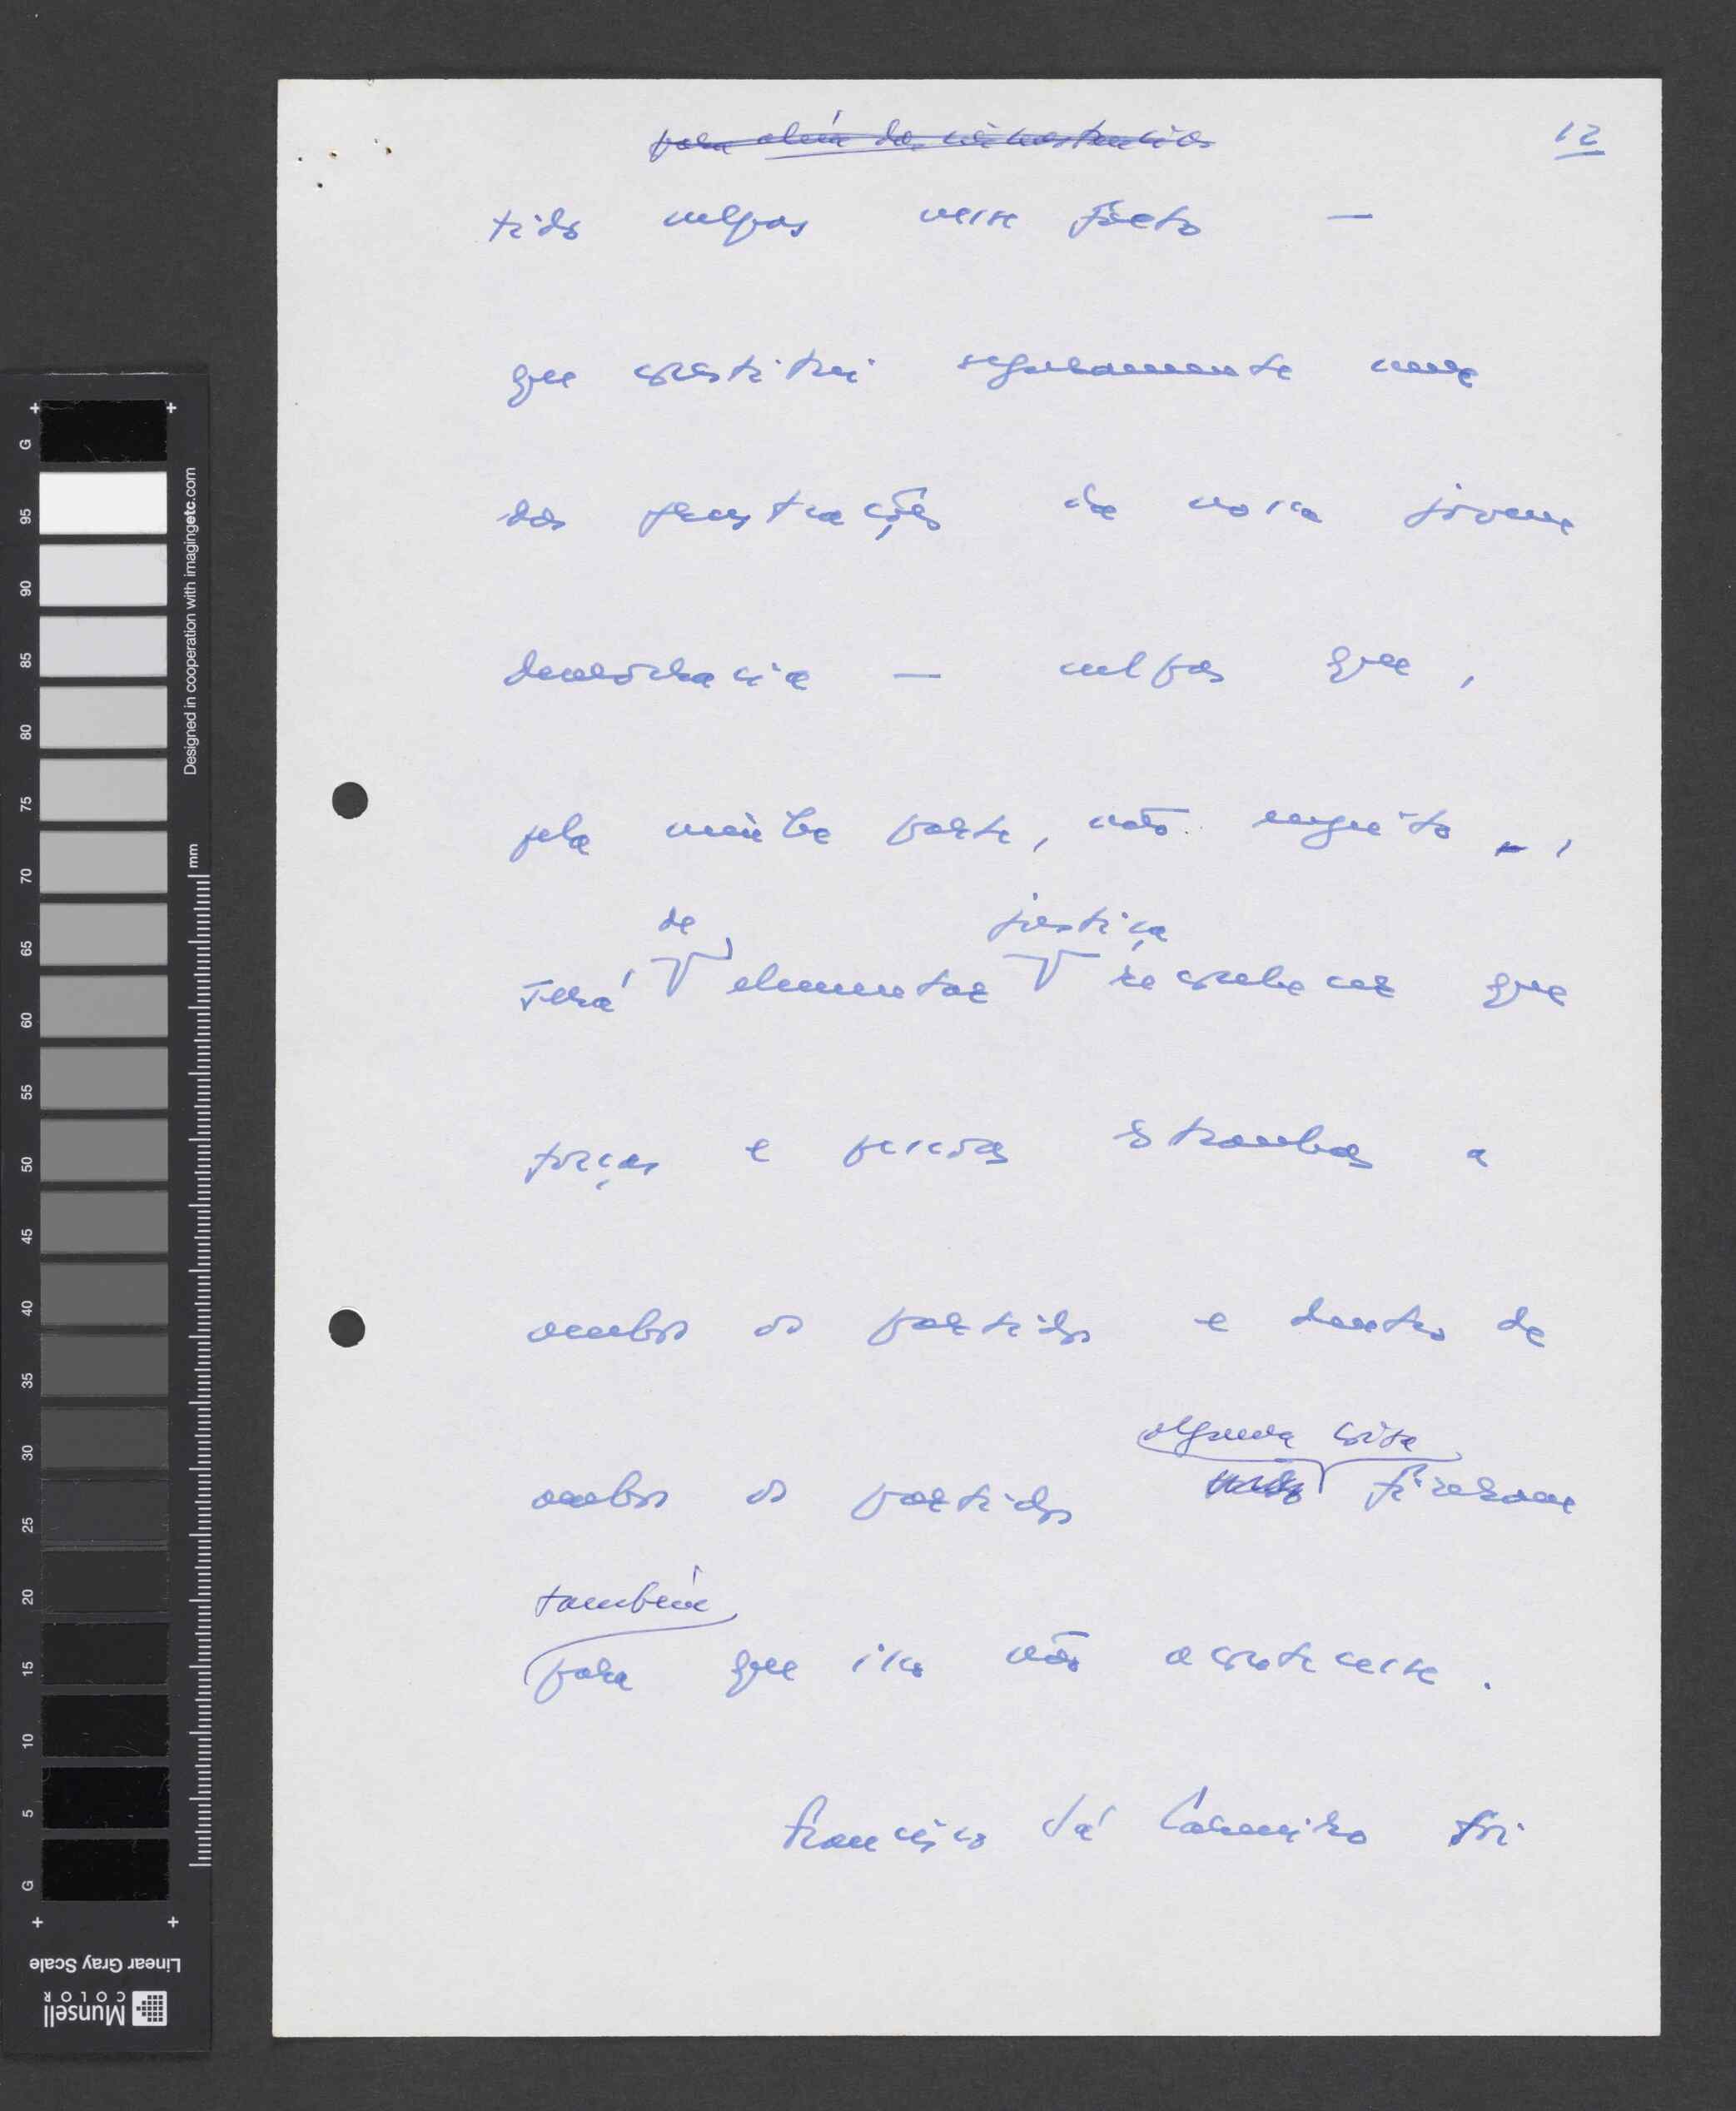 12
para além das circunstâncias
tido culpas nesse facto —
que constitui seguramente uma
das frustrações da nossa jovem
democracia — culpas que,
pela minha parte, não enjeito,
de justiça
será elementar reconhecer que
forças e pessoas estranhas a
ambos os partidos e dentro de
alguma coisa
ambos os partidos fizeram
também
para que isso não acontecesse.
Francisco Sá Carneiro foi
G
95
90
85
80
75
70
65
60
55
50
45
40
35
30
25
20
15
10
5
G
mm
Designed in cooperation with imagingetc.com
Linear Gray Scale
Munsell
COLOR